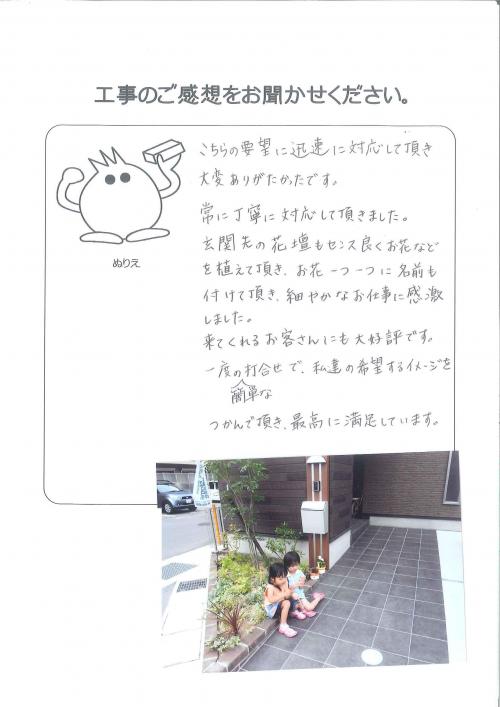 工事のご感想をお聞かせください。
ぬりえ
こちらの要望に迅速に対応して頂き
大変ありがたかったです。
常に丁寧に対応して頂きました。
玄関先の花壇もセンス良くお花など
を植えて頂き、お花一つ一つに名前も
付けて頂き、細やかなお仕事に感激
しました。
来てくれるお客さんにも大好評です。
一度の打合せで、私達の希望するイメージを
簡単な
つかんで頂き、最高に満足しています。